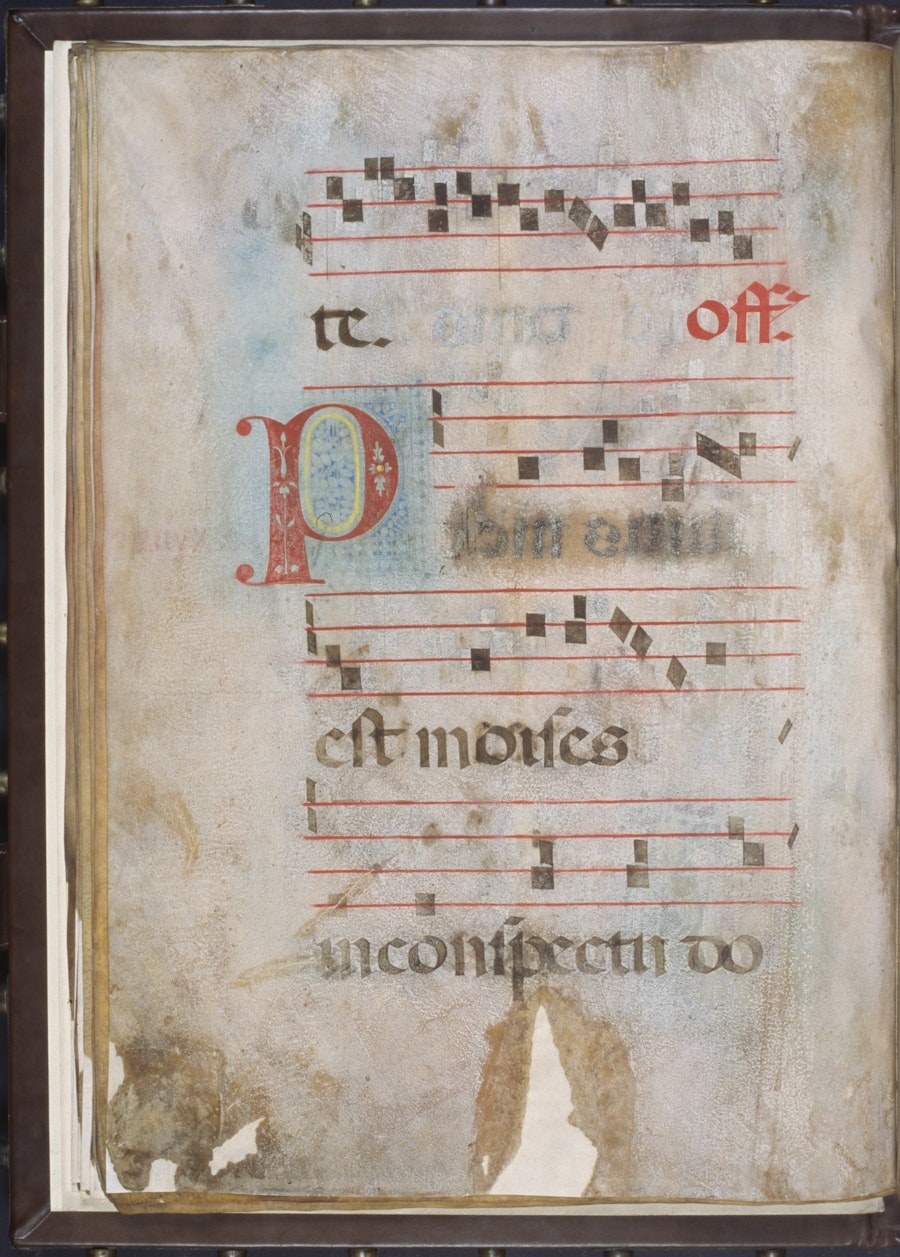 te. off.
P
est moises
inconspectu do